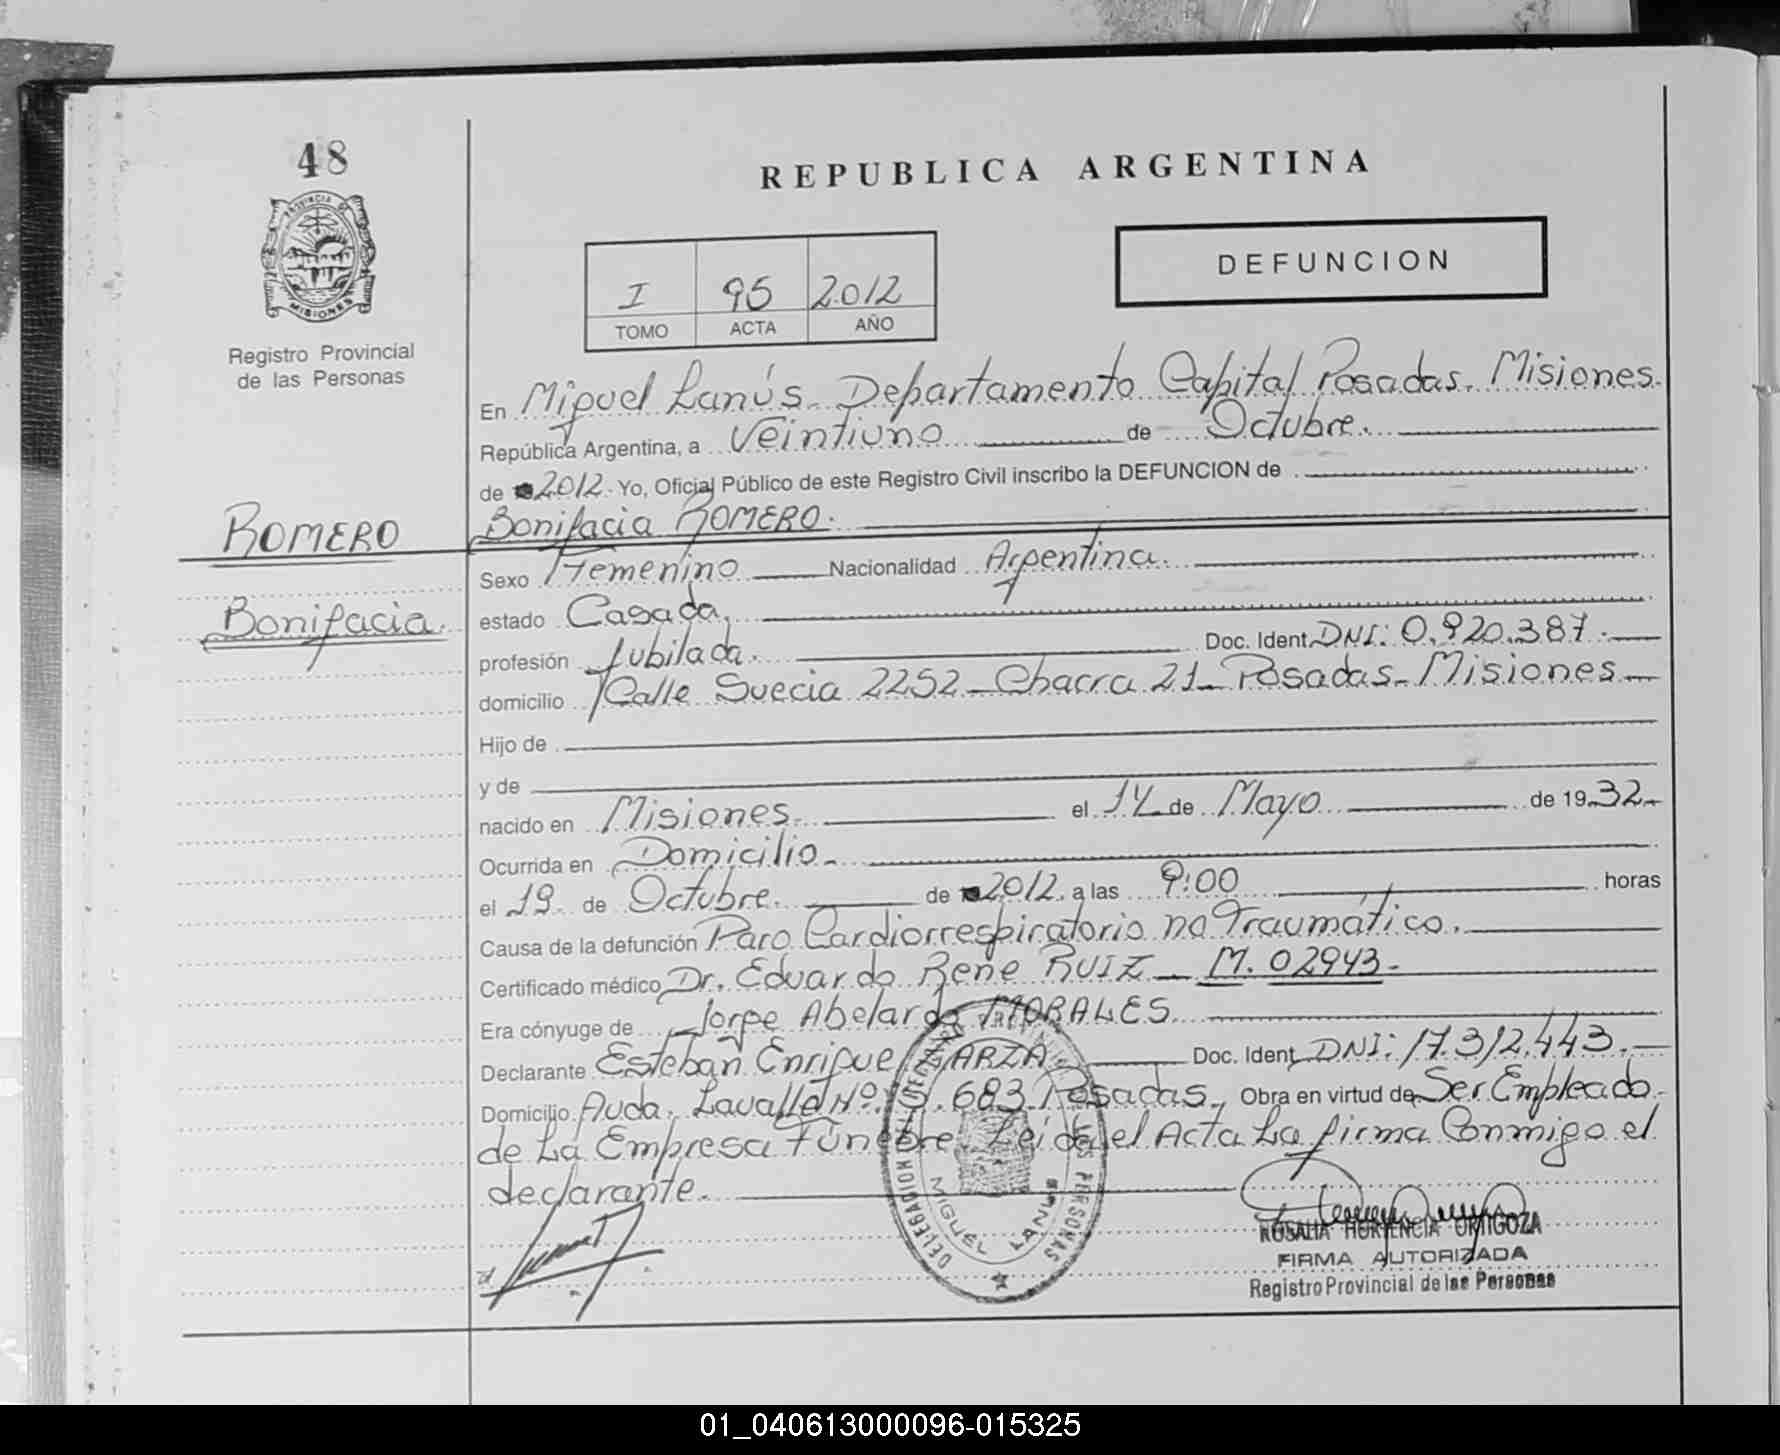 48
REPUBLICA ARGENTINA
PROVINCIA DE
MISIONES
Registro Provincial
de las Personas
I 95 2012
TOMO ACTA AÑO
DEFUNCION
En Miguel Lanús. Departamento Capital Posadas. Misiones.
República Argentina, a Veintiuno de Octubre.
de 2012. Yo, Oficial Público de este Registro Civil inscribo la DEFUNCION de
ROMERO
Bonifacia ROMERO.
Sexo Femenino Nacionalidad Argentina.
Bonifacia.
estado Casada.
profesión Jubilada. Doc. Ident. DNI: 0.920.387.
domicilio Calle Suecia 2252 - Chacra 21 - Posadas - Misiones
Hijo de
y de
nacido en Misiones. el 14 de Mayo de 1932.
Ocurrida en Domicilio.
el 19 de Octubre. de 2012. a las 9:00 horas
Causa de la defunción Paro Cardiorrespiratorio no Traumático.
Certificado médico Dr. Eduardo Rene RUIZ - M. 02943.
Era cónyuge de Jorge Abelardo MORALES
Declarante Esteban Enrique GARZA Doc. Ident. DNI: 17.312.443.
Domicilio Avda. Lavalle Nº: 683 Posadas. Obra en virtud de Ser Empleado
de La Empresa Fúnebre. Leida el Acta La firma Conmigo el
declarante.
DELEGACION PERSONAS
MIGUEL LANUS
ROSALIA HORTENCIA ORTIGOZA
FIRMA AUTORIZADA
Registro Provincial de las Personas
01_040613000096-015325